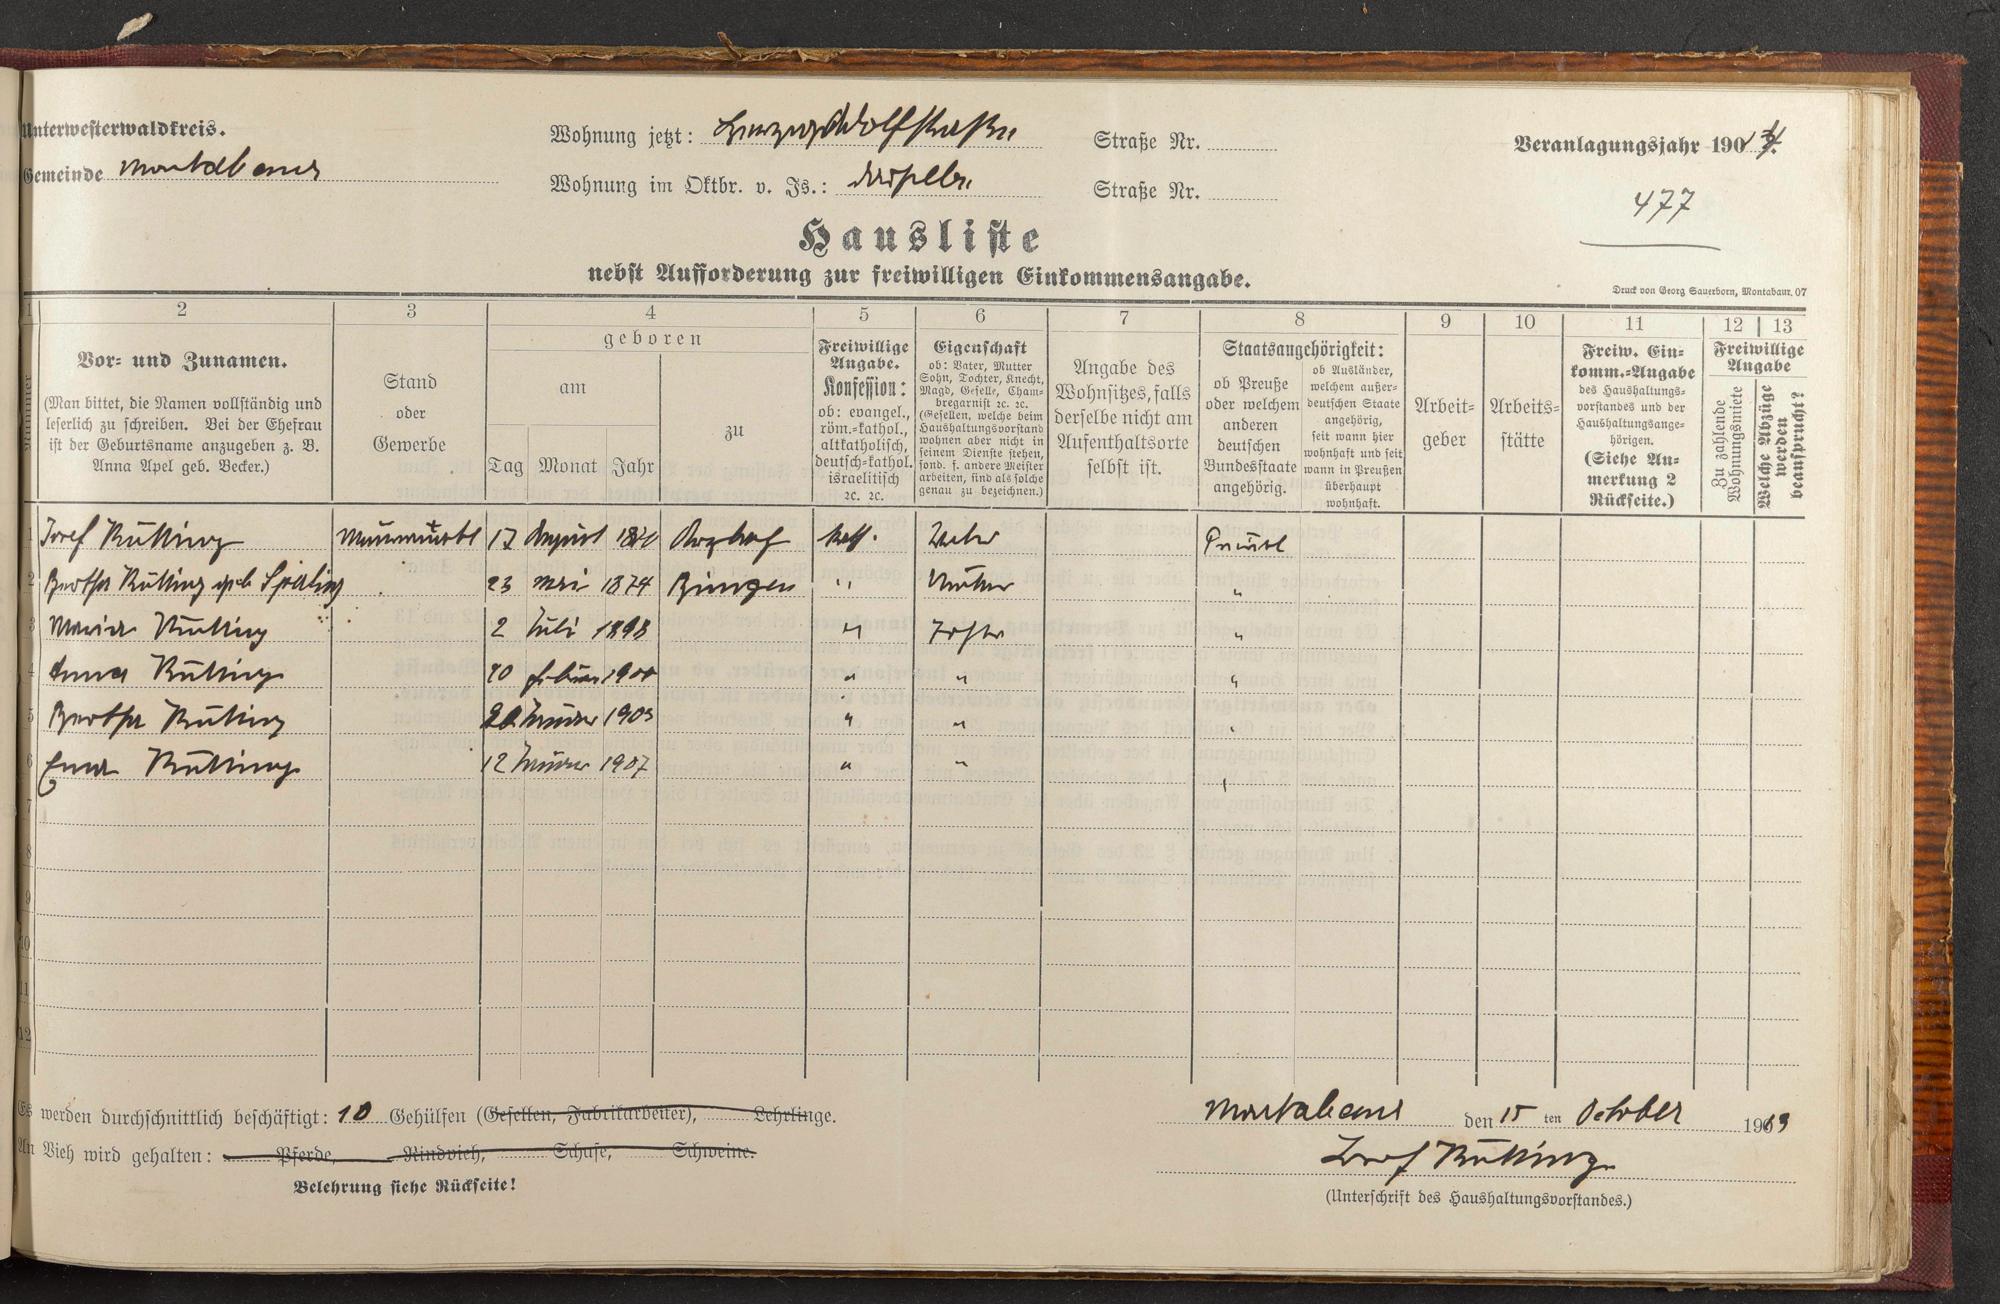 Unterwesterwaldkreis.
Gemeinde Montabaur
Wohnung jetzt: Straße Nr.
Wohnung im Oktbr. v. Js.: dieselbe Straße Nr.
Veranlagungsjahr 190
477
Hausliste
nebst Aufforderung zur freiwilligen Einkommensangabe.
Druck von Georg Sauerborn, Montabaur. 07
1 2 3 4 5 6 7 8 9 10 11 12 13
Nummer
Vor- und Zunamen.
(Man bittet, die Namen vollständig und
leserlich zu schreiben. Bei der Ehefrau
ist der Geburtsname anzugeben z. B.
Anna Apel geb. Becker.)
Stand
oder
Gewerbe
geboren
am
Tag Monat Jahr
zu
Freiwillige
Angabe.
Konfession:
ob: evangel.,
röm.-kathol.,
altkatholisch,
deutsch-kathol.
israelitisch
ꝛc. ꝛc.
Eigenschaft
ob: Vater, Mutter
Sohn, Tochter, Knecht,
Magd, Geselle, Cham-
bregarnist ꝛc. ꝛc.
(Gesellen, welche beim
Haushaltungsvorstand
wohnen aber nicht in
seinem Dienste stehen,
sond. f. andere Meister
arbeiten, sind als solche
genau zu bezeichnen.)
Angabe des
Wohnsitzes, falls
derselbe nicht am
Aufenthaltsorte
selbst ist.
Staatsangehörigkeit:
ob Preuße
oder welchem
anderen
deutschen
Bundesstaate
angehörig.
ob Ausländer,
welchem außer-
deutschen Staate
angehörig,
seit wann hier
wohnhaft und seit
wann in Preußen
überhaupt
wohnhaft.
Arbeit-
geber
Arbeits-
stätte
Freiw. Ein-
komm.-Angabe
des Haushaltungs-
vorstandes und der
Haushaltungsange-
hörigen.
(Siehe An-
merkung 2
Rückseite.)
Freiwillige
Angabe
Zu zahlende
Wohnungsmiete
Welche Abzüge
werden
beansprucht?
1 Josef Rütting 17 August kath. Vater Preuße
2 Bertha Rütting geb 23 Mai 1874 Bingen " Mutter "
3 Maria Rütting 2 Juli 1898 " Tochter "
4 Anna Rütting 10 Februar 1900 " " "
5 Bertha Rütting Januar 1903 " " "
6 Erna Rütting 12 Januar 1907 " " "
7
8
9
10
11
12
Es werden durchschnittlich beschäftigt: 10 Gehülfen (Gesellen, Fabrikarbeiter), Lehrlinge.
An Vieh wird gehalten: Pferde, Rindvieh, Schafe, Schweine.
Belehrung siehe Rückseite!
Montabaur den 15 ten October 1913
Josef Rütting
(Unterschrift des Haushaltungsvorstandes.)